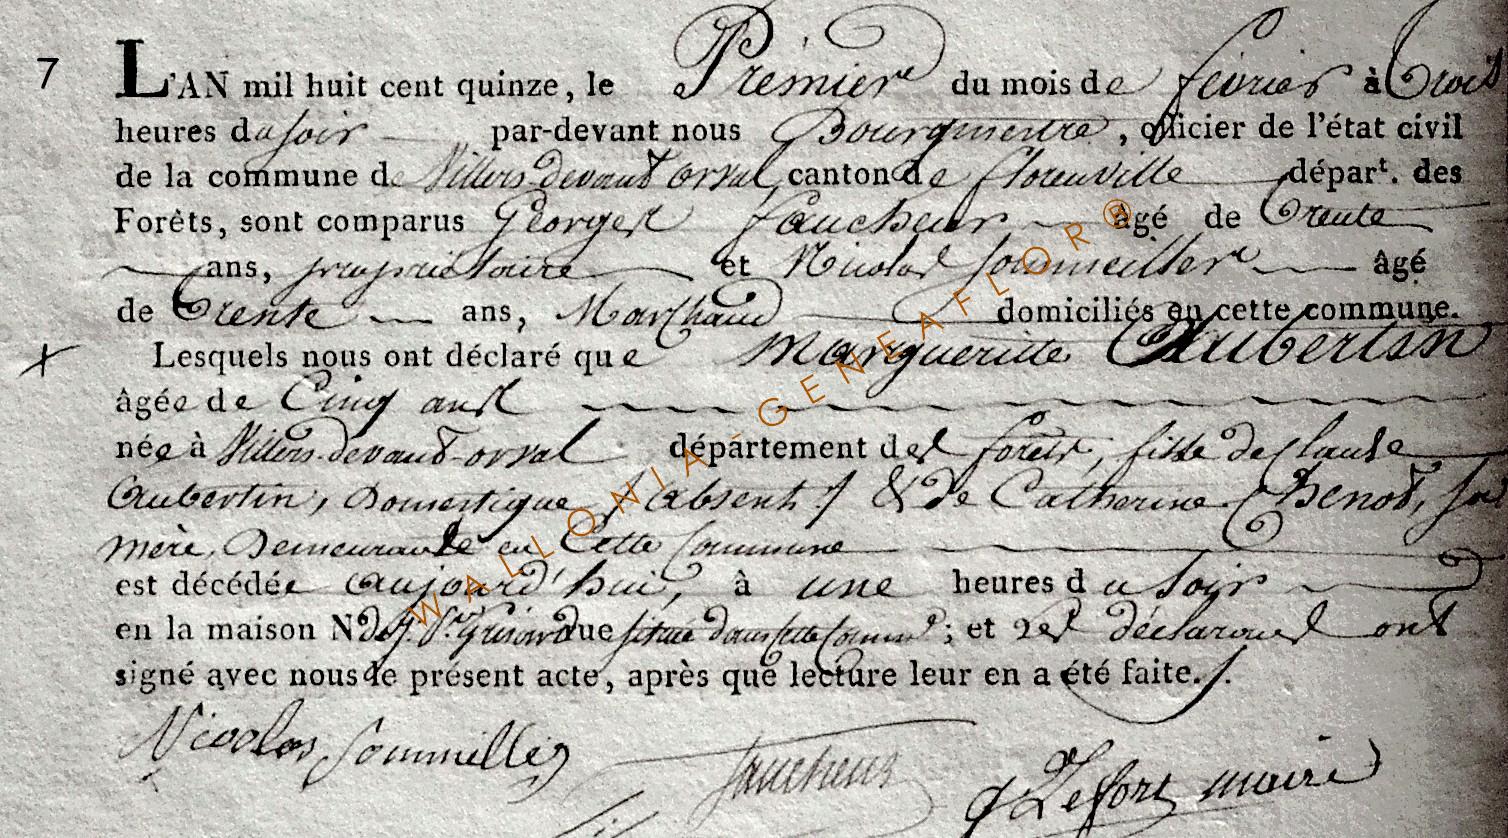 7 L'AN mil huit cent quinze, le Premier du mois de fevrier à Trois
heures du soir par-devant nous Bourgmestre, officier de l'état civil
de la commune de Villers devant orval, canton de florenville départ. des
Forêts, sont comparus Georges faucheur âgé de Trente
ans, propriétaire et Nicolas Sommeiller âgé
de Trente ans, Marchand domiciliés en cette commune.
Lesquels nous ont déclaré que Margueritte Aubertin
âgée de Cinq ans
née à Villers-devant-orval département des forêts, fille de Claude
Aubertin, Domestique (absent) & de Catherine Henot, sa
mère, Demeurante en Cette Commune
est décédée aujourd'hui, à une heures du soir
en la maison située dans cette Commune; et les déclarans ont
signé avec nous le présent acte, après que lecture leur en a été faite.
Nicolas Sommeiller faucheur Lefort maire
WALLONIA-GENEAFLOR®